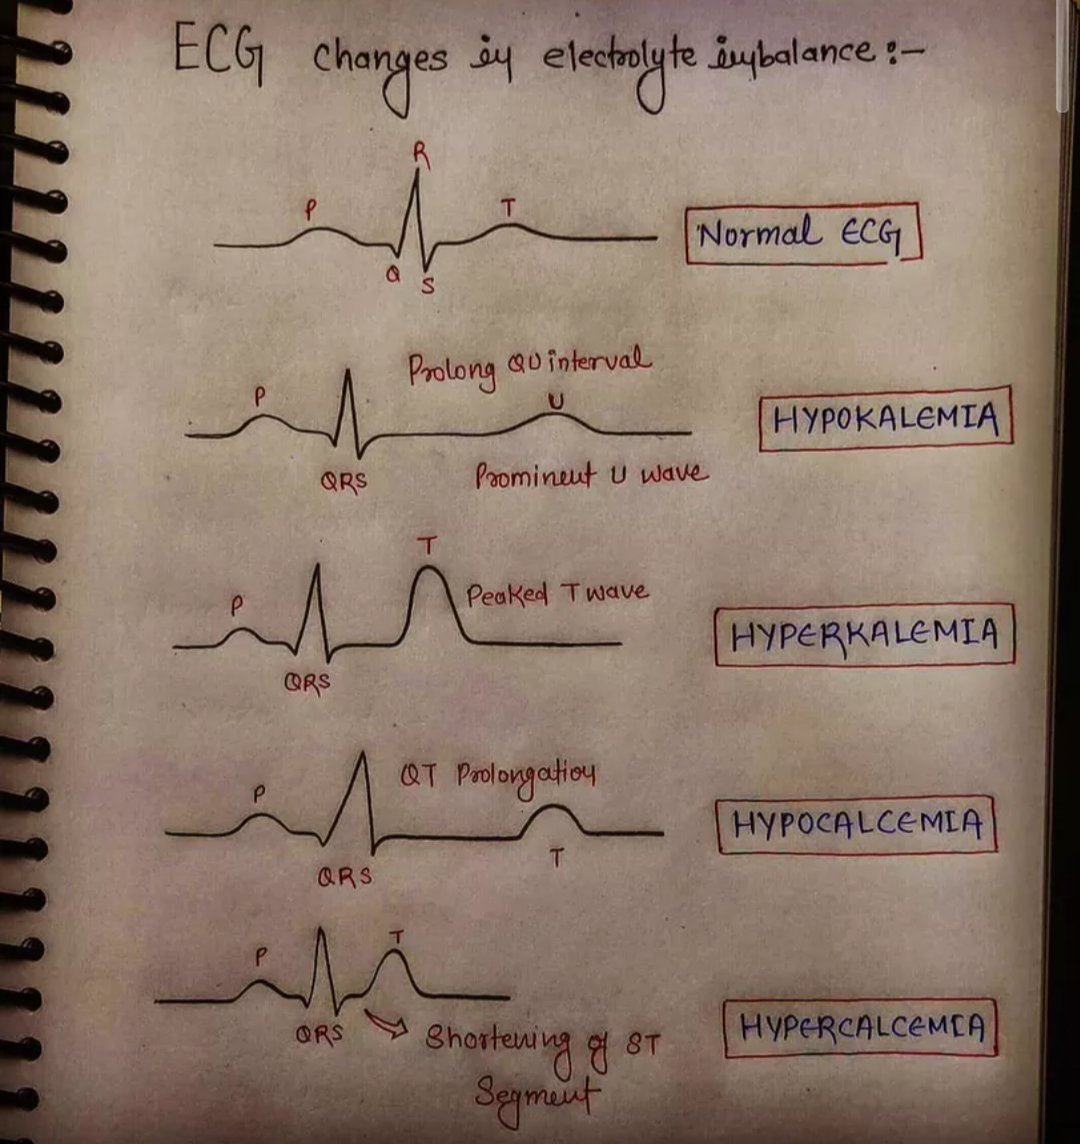 ECG changes in electrolyte imbalance :-
R
P
T
Normal ECG
Q
S
Prolong QU interval
P
U
HYPOKALEMIA
QRS
Prominent U wave
T
P
Peaked T wave
HYPERKALEMIA
QRS
QT Prolongation
P
HYPOCALCEMIA
T
QRS
T
P
QRS
Shortening of ST
Segment
HYPERCALCEMIA